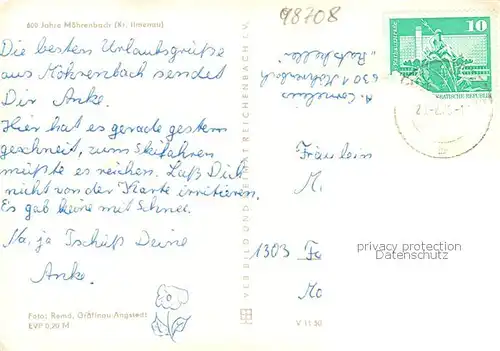 800 Jahre Möhrenbach (Kr. Ilmenau)
98708
Die besten Urlaubsgrüße
aus Möhrenbach sendet
Dir Anke.
Hier hat es gerade gestern
geschneit, zum Skifahren
müßte es reichen. Laß Dich
nicht von der Karte irritieren.
Es gab keine mit Schnee.
Na ja Tschüß Deine
Anke.
Foto: Remd, Gräfinau-Angstedt
EVP 0,20 M
VEB BILD UND HEIMAT REICHENBACH I. V.
A. Cornelius
6301 Möhrenbach
"Ratskeller"
10
Fräulein
M.
1303 Fa
Mo
V 11 50
privacy protection
Datenschutz